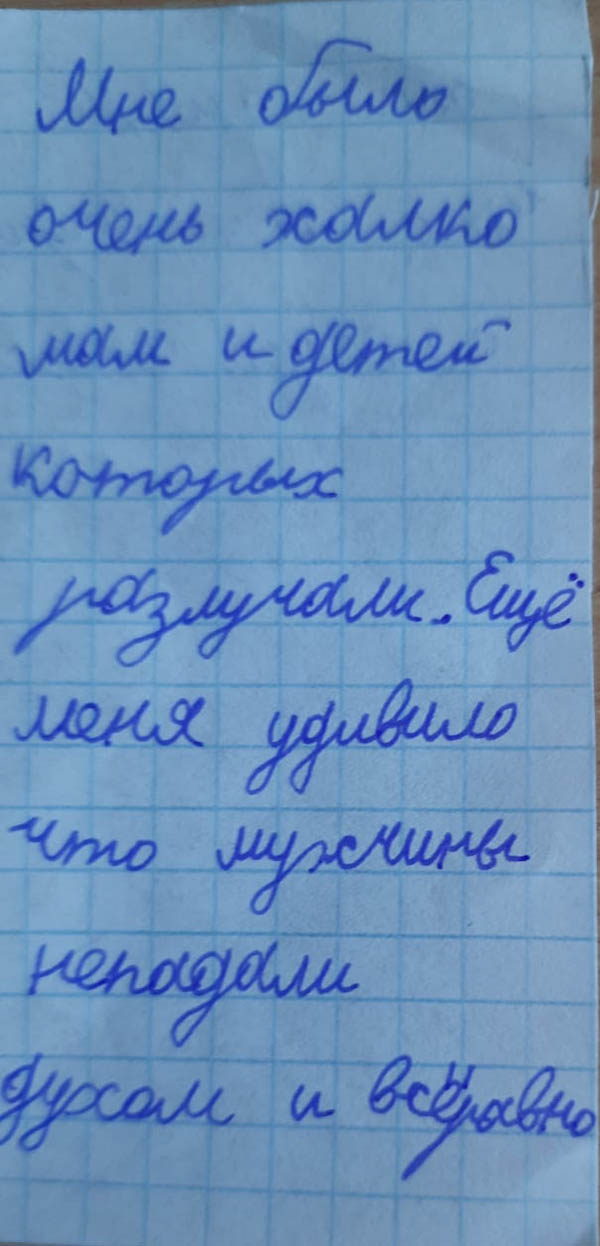 Мне было
очень жалко
мам и детей
которых
разлучали. Ещё
меня удивило
что мужчины
непадали
духом и всёравно